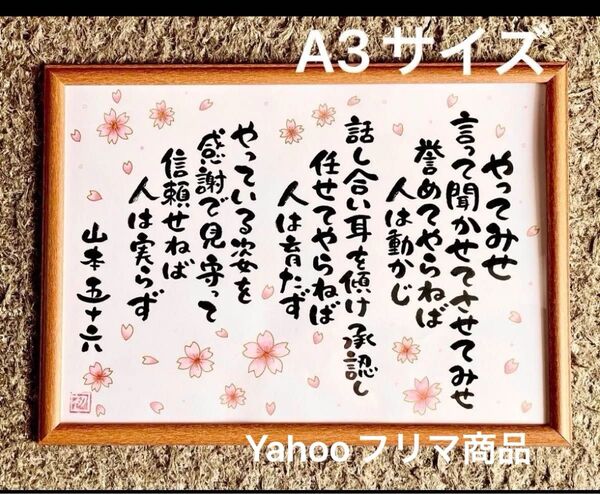 A3サイズ
やってみせ
言って聞かせてさせてみせ
誉めてやらねば
人は動かじ
話し合い耳を傾け承認し
任せてやらねば
人は育たず
やっている姿を
感謝で見守って
信頼せねば
人は実らず
山本五十六
Yahooフリマ商品